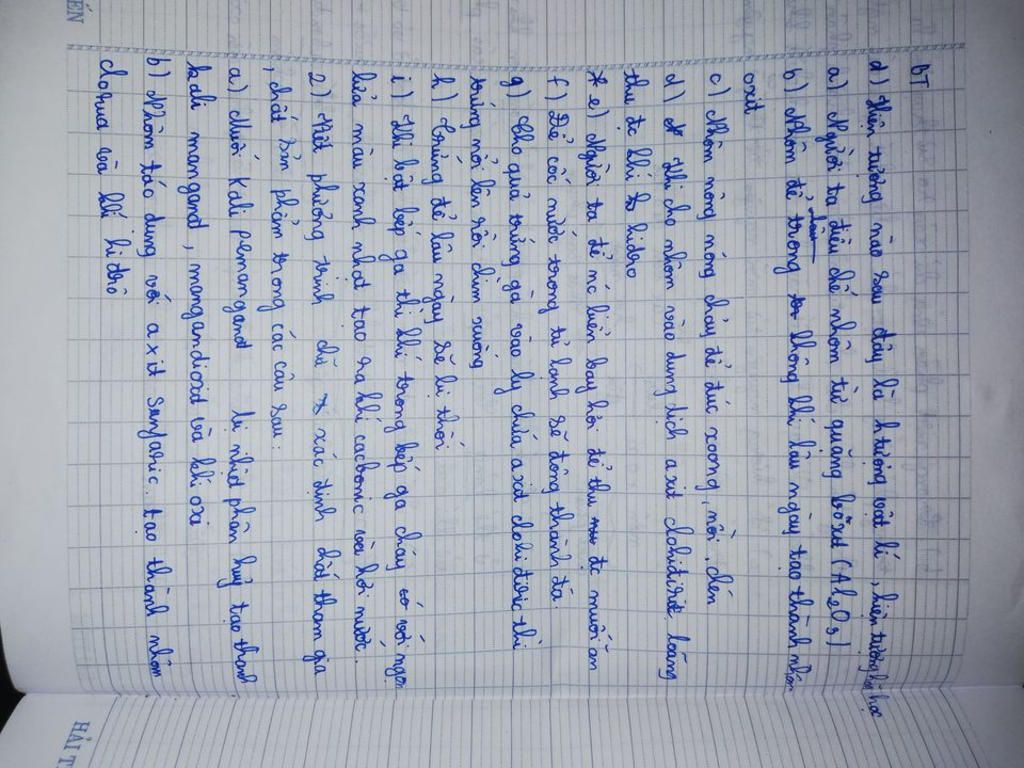 BT
d) Hiện tượng nào sau đây là htượng vật lí, hiện tượng hóa học
a) Người ta điều chế nhôm từ quặng bôxit (Al2O3)
b) Nhôm để trong không khí lâu ngày tạo thành nhôm
oxit
c) Nhôm nóng chảy để đúc xoong, nồi, chén
d) Khi cho nhôm vào dung dịch axit clohiđric loãng
thu đc khí hidro
* e) Người ta để nc biển bay hơi để thu đc muối ăn
f) Để cốc nước trong tủ lạnh sẽ đông thành đá.
g) Cho quả trứng gà vào ly chứa axit clohiđric thì
trứng nổi lên rồi chìm xuống
h) trứng để lâu ngày sẽ bị thối
i) Khi bật bếp ga thì khí trong bếp ga cháy với ngọn
lửa màu xanh nhạt tạo ra khí cacbonic và hơi nước.
2) Viết phương trình chữ xác định chất tham gia
, chất sản phẩm trong các câu sau:
a) Muối Kali pemangant bị nhiệt phân huỷ tạo thành
kali mangant, mangandioxit và khí oxi
b) Nhôm tác dung với axit sunfuric. tạo thành nhôm
clorua và khí hiđrô
HẢI T